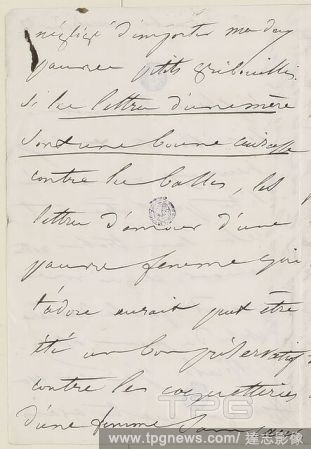 négligé d'emporter mes deux
pauvres petits gribouillis.
Si les lettres d'une mère
sont une bonne cuirasse
contre les balles, les
lettres d'amour d'une
pauvre femme qui
t'adore aurait peut être
été un bon préservatif
contre les coquetteries
d'une femme sans
TPG
www.tpgnews.com / 達志影像